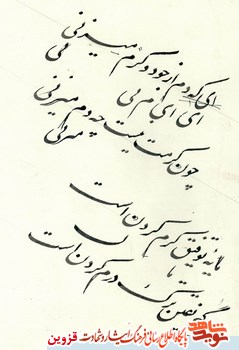 ای که دم از جود و کرم میزنی
ای ای ام نی می
چون کرمت نیست چه دم میزنی
مایه توفیق کرم کردن است
ترک درم کردن است
نوید شاهد
پایگاه اطلاع رسانی فرهنگ ایثار و شهادت قزوین